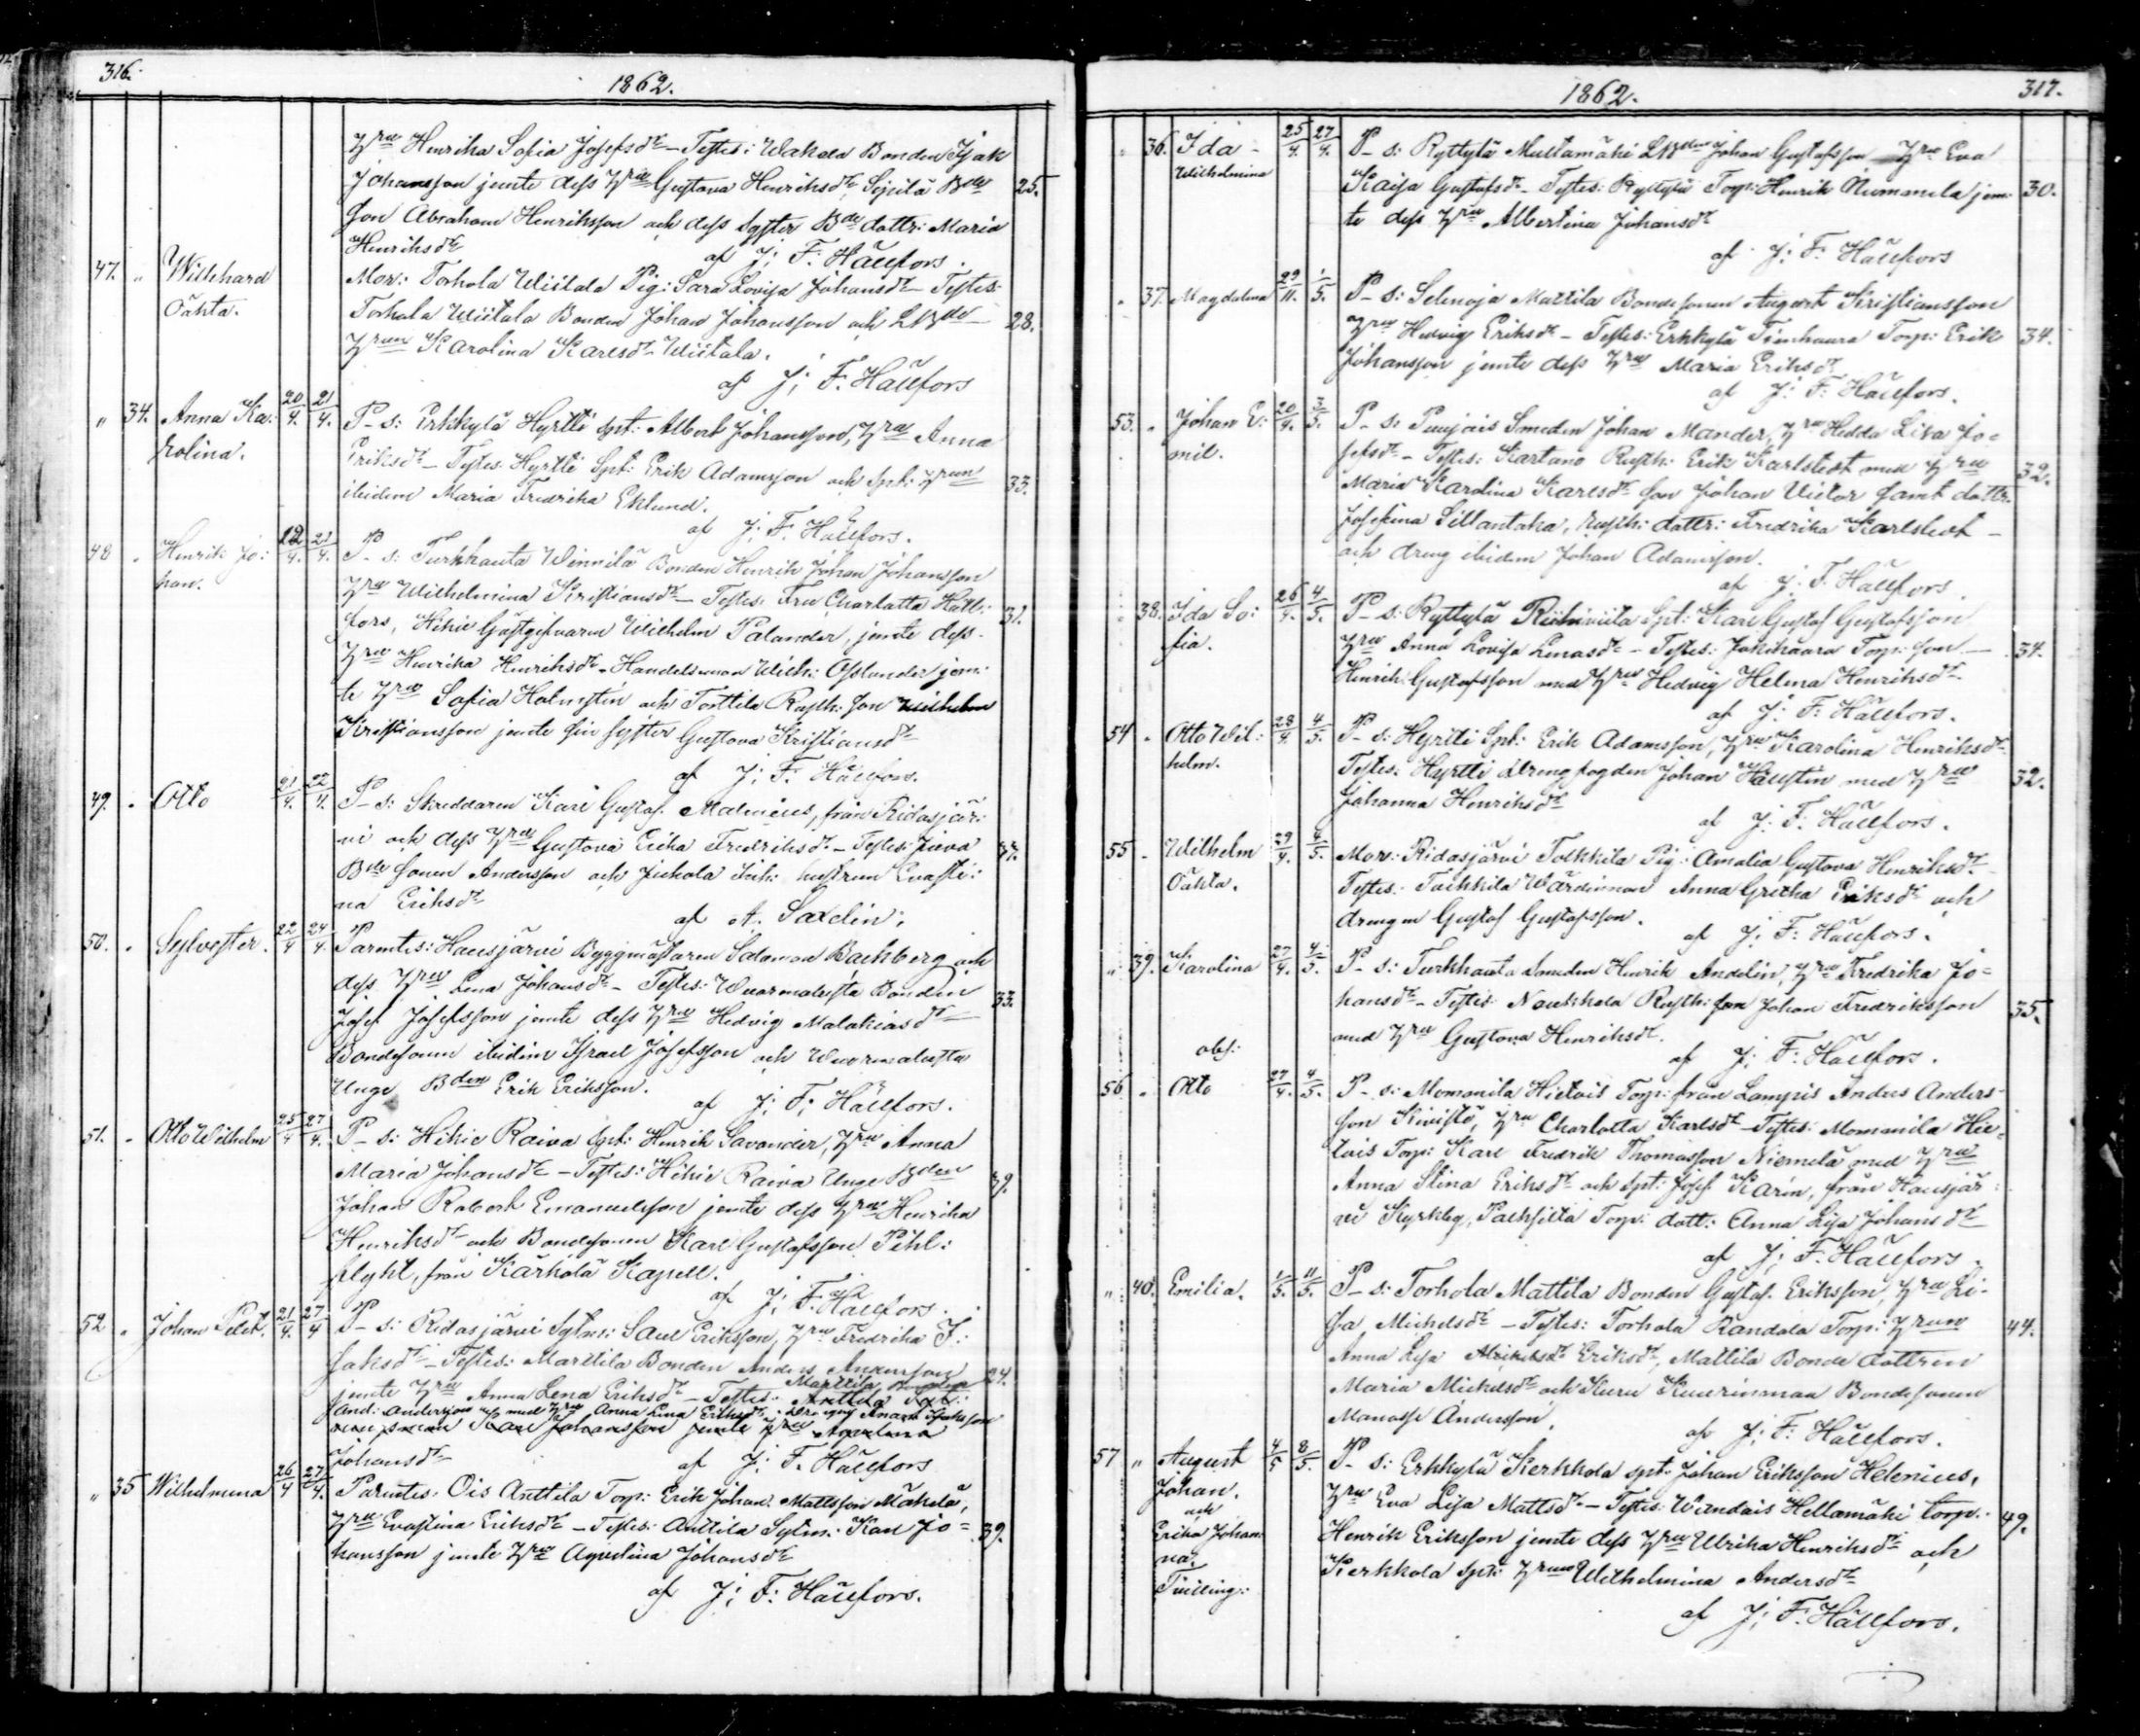 316.
1862.
Hru Henrika Sofia Josefsdr – Testes: Wahala Bonden Isak
Johansson jemte dess Hru Gustava Henriksdr, Sipilä Bde 25.
son Abraham Henriksson och dess syster Bde dottr: Maria
Henriksdr
af J: F: Hällfors.
47. „ Willehard Mor: Torhola Uutala Pig: Sara Lovisa Johansdr – Testes:
Oäkta. Torhola Uutala Bonden Johan Johansson och 28.
Hrun Karolina Karlsdr Uutala.
af J; F. Hällfors
„ 34. Anna Ka: 20/4. 21/4. P_ s: Erkkylä Hyrtti spt: Albert Johansson, Hru Anna
rolina. Eriksdr – Testes: Hyrtti Spt: Erik Adamsson och Spt: Hrun 33.
ibidem Maria Fredrika Eklund.
af J; F: Hällfors.
48 „ Henrik Jo: P_ s: Turkhauta Winnilä Bonden Henrik Johan Johansson
han. Hru Wilhelmina Kristiansdr – Testes: Fru Charlotta Häll: 31.
fors, Hikiä Gästgifvaren Wilhelm Palander, jemte dess
Hru Henrika Henriksdr – Handelsman Wilh: Osslunder jem:
te Hru Sofia Holmstén och Torttila Rusth: son Wilhelm
Kristiansson jemte sin syster Gustava Kristiansdr
af J; F. Hällfors.
49. „ Otto 21/4. 22/4. P_ s: Skreddaren Karl Gustaf Malenius, från Ridasjär:
vi och dess Hru Gustava Erika Fredriksdr – Testes: 37.
Bde sonen Andersson och hustrun Evasti:
na Eriksdr
af A. Saxelin;
50. „ Sylvester. 22/4 24/4. Parentes: Hausjärvi Byggmästaren Salomon Backberg och
dess Hru Lena Johansdr – Testes: Wuormalusta Bonden 33.
Josef Josefsson jemte dess Hru Hedvig Malakiasdr
Bondesonen ibidem Israel Josefsson och Wuormalusta
Unge Bden Erik Eriksson.
af J; F; Hällfors.
51. „ Otto Wilhelm 25/4 27/4. P_ s: Hikiä Raiva spt: Henrik Savander, Hru Anna
Maria Johansdr – Testes: Hikiä Raiva Unge Bden 39.
Johan Robert Emanuelsson jemte dess Hru Henrika
Henriksdr och Bondesonen Karl Gustafsson Pihl:
flykt, från Kärkölä Kapell.
af J; F. Hällfors.
52 „ Johan 21/4. 27/4 P_ s: Ridasjärvi Sytns: Saul Eriksson, Hru Fredrika I:
saksdr – Testes: Marttila Bonden Anders Andersson 24.
jemte Hru Anna Lena Eriksdr – Testes: Marttila
And: Andersson med Hru Anna Lena Eriksdr
Karl Johansson jemte Hru
Johansdr
af J; F. Hällfors
„ 35 Wilhelmina 26/4 27/4. Parentes: Ois Anttila Torp: Erik Johan Mattsson Mäkelä,
Hru Evastina Eriksdr – Testes: Anttila Sytns: Karl Jo= 39.
hansson jemte Hru Agustina Johansdr
af J; F: Hällfors.
1862.
317.
„ 36. Ida – 25/4. 27/4. P_ s: Ryttylä Multamäki Johan Gustafsson Hru Eva
Wilhelmina Kaisa Gustafsdr – Testes: Ryttylä Torp: Henrik Nummela jem: 30.
te dess Hru Albertina Johansdr
af J: F: Hällfors
„ 37. Magdalena 1/5. P_ s: Selenoja Mattila Bondesonen August Kristiansson
Hru Hedvig Eriksdr – Testes: Erkkylä Torp: Erik 34.
Johansson jemte dess Hru Maria Eriksdr
af J: F: Hällfors.
53. „ Johan E: 20/4. 3/5. P_ s: Puujais Smeden Johan Mander, Hru Hedda Lisa Jo=
mil. sefsdr – Testes: Kartano Rusth: Erik Karlstedt med Hru 32.
Maria Karolina Karlsdr son Johan Victor samt dottr:
Josefina Sillantaka, Rusth: dottr: Fredrika Karlstedt –
och dreng ibidem Johan Adamsson.
af J: F. Hällfors.
„ 38. Ida So: 26/4. 4/5. P_ s: Ryttylä Spt: Karl Gustaf Gustafsson
fia. Hru Anna Lovisa Linasdr – Testes: Torp: son 34.
Henrik Gustafsson med Hru Hedvig Helena Henriksdr
af J: F: Hällfors.
54 „ Otto Wil: 28/4. 4/5. P_ s: Hyrtti Spt: Erik Adamsson, Hru Karolina Henriksdr
helm. Testes: Hyrtti drengfogden Johan Hällstén med Hru 32.
Johanna Henriksdr
af J: F: Hällfors.
55 „ Wilhelm 29/4. 4/5. Mor: Ridasjärvi Tolkkila Pig: Amalia Gustava Henriksdr
Oäkta. Testes: Tolkkila Wärdinnan Anna Gretha Eriksdr och
drengen Gustaf Gustafsson.
af J; F: Hällfors.
„ 39. Karolina 27/4. 4/5. P_ s: Turkhauta Smeden Henrik Andelin, Hru Fredrika Jo=
hansdr – Testes: Naukkala Rusth: son Johan Fredriksson 35.
med Hru Gustava Henriksdr.
af J; F: Hällfors.
obs:
56 „ Otto 27/4. 4/5. P_ s: Mommila Hietois Torp: från Lampis Anders Anders-
son Kivistö, Hru Charlotta Karlsdr – Testes: Mommila Hie=
tois Torp: Karl Fredrik Thomasson Niemelä med Hru
Anna Stina Eriksdr och spt: Josef Karin, från Hausjär:
vi Kyrkby, Torp: dott: Anna Lisa Johansdr
af J; F. Hällfors.
„ 40. Emilia. 1/5. 11/5. P_ s: Torhola Mattila Bonden Gustaf Eriksson, Hru Li-
sa Michelsdr – Testes: Torhola Randala Torp: Hrun 44.
Anna Lisa Eriksdr, Mattila Bonde dottren
Maria Michelsdr och Kuru Bondesonen
Manasse Andersson.
af J; F: Hällfors.
57 „ August 4/5 8/5. P_ s: Erkkylä Kerkkola spt: Johan Eriksson Helenius,
Johan. Hru Eva Lisa Mattsdr – Testes: Wandais Hellamäki torp: 49.
och Henrik Eriksson jemte dess Hru Ulrika Henriksdr och
Erika Johan: Kerkkola spt: Hrun Wilhelmina Andersdr
na.
Tvilling:
af J; F. Hällfors.